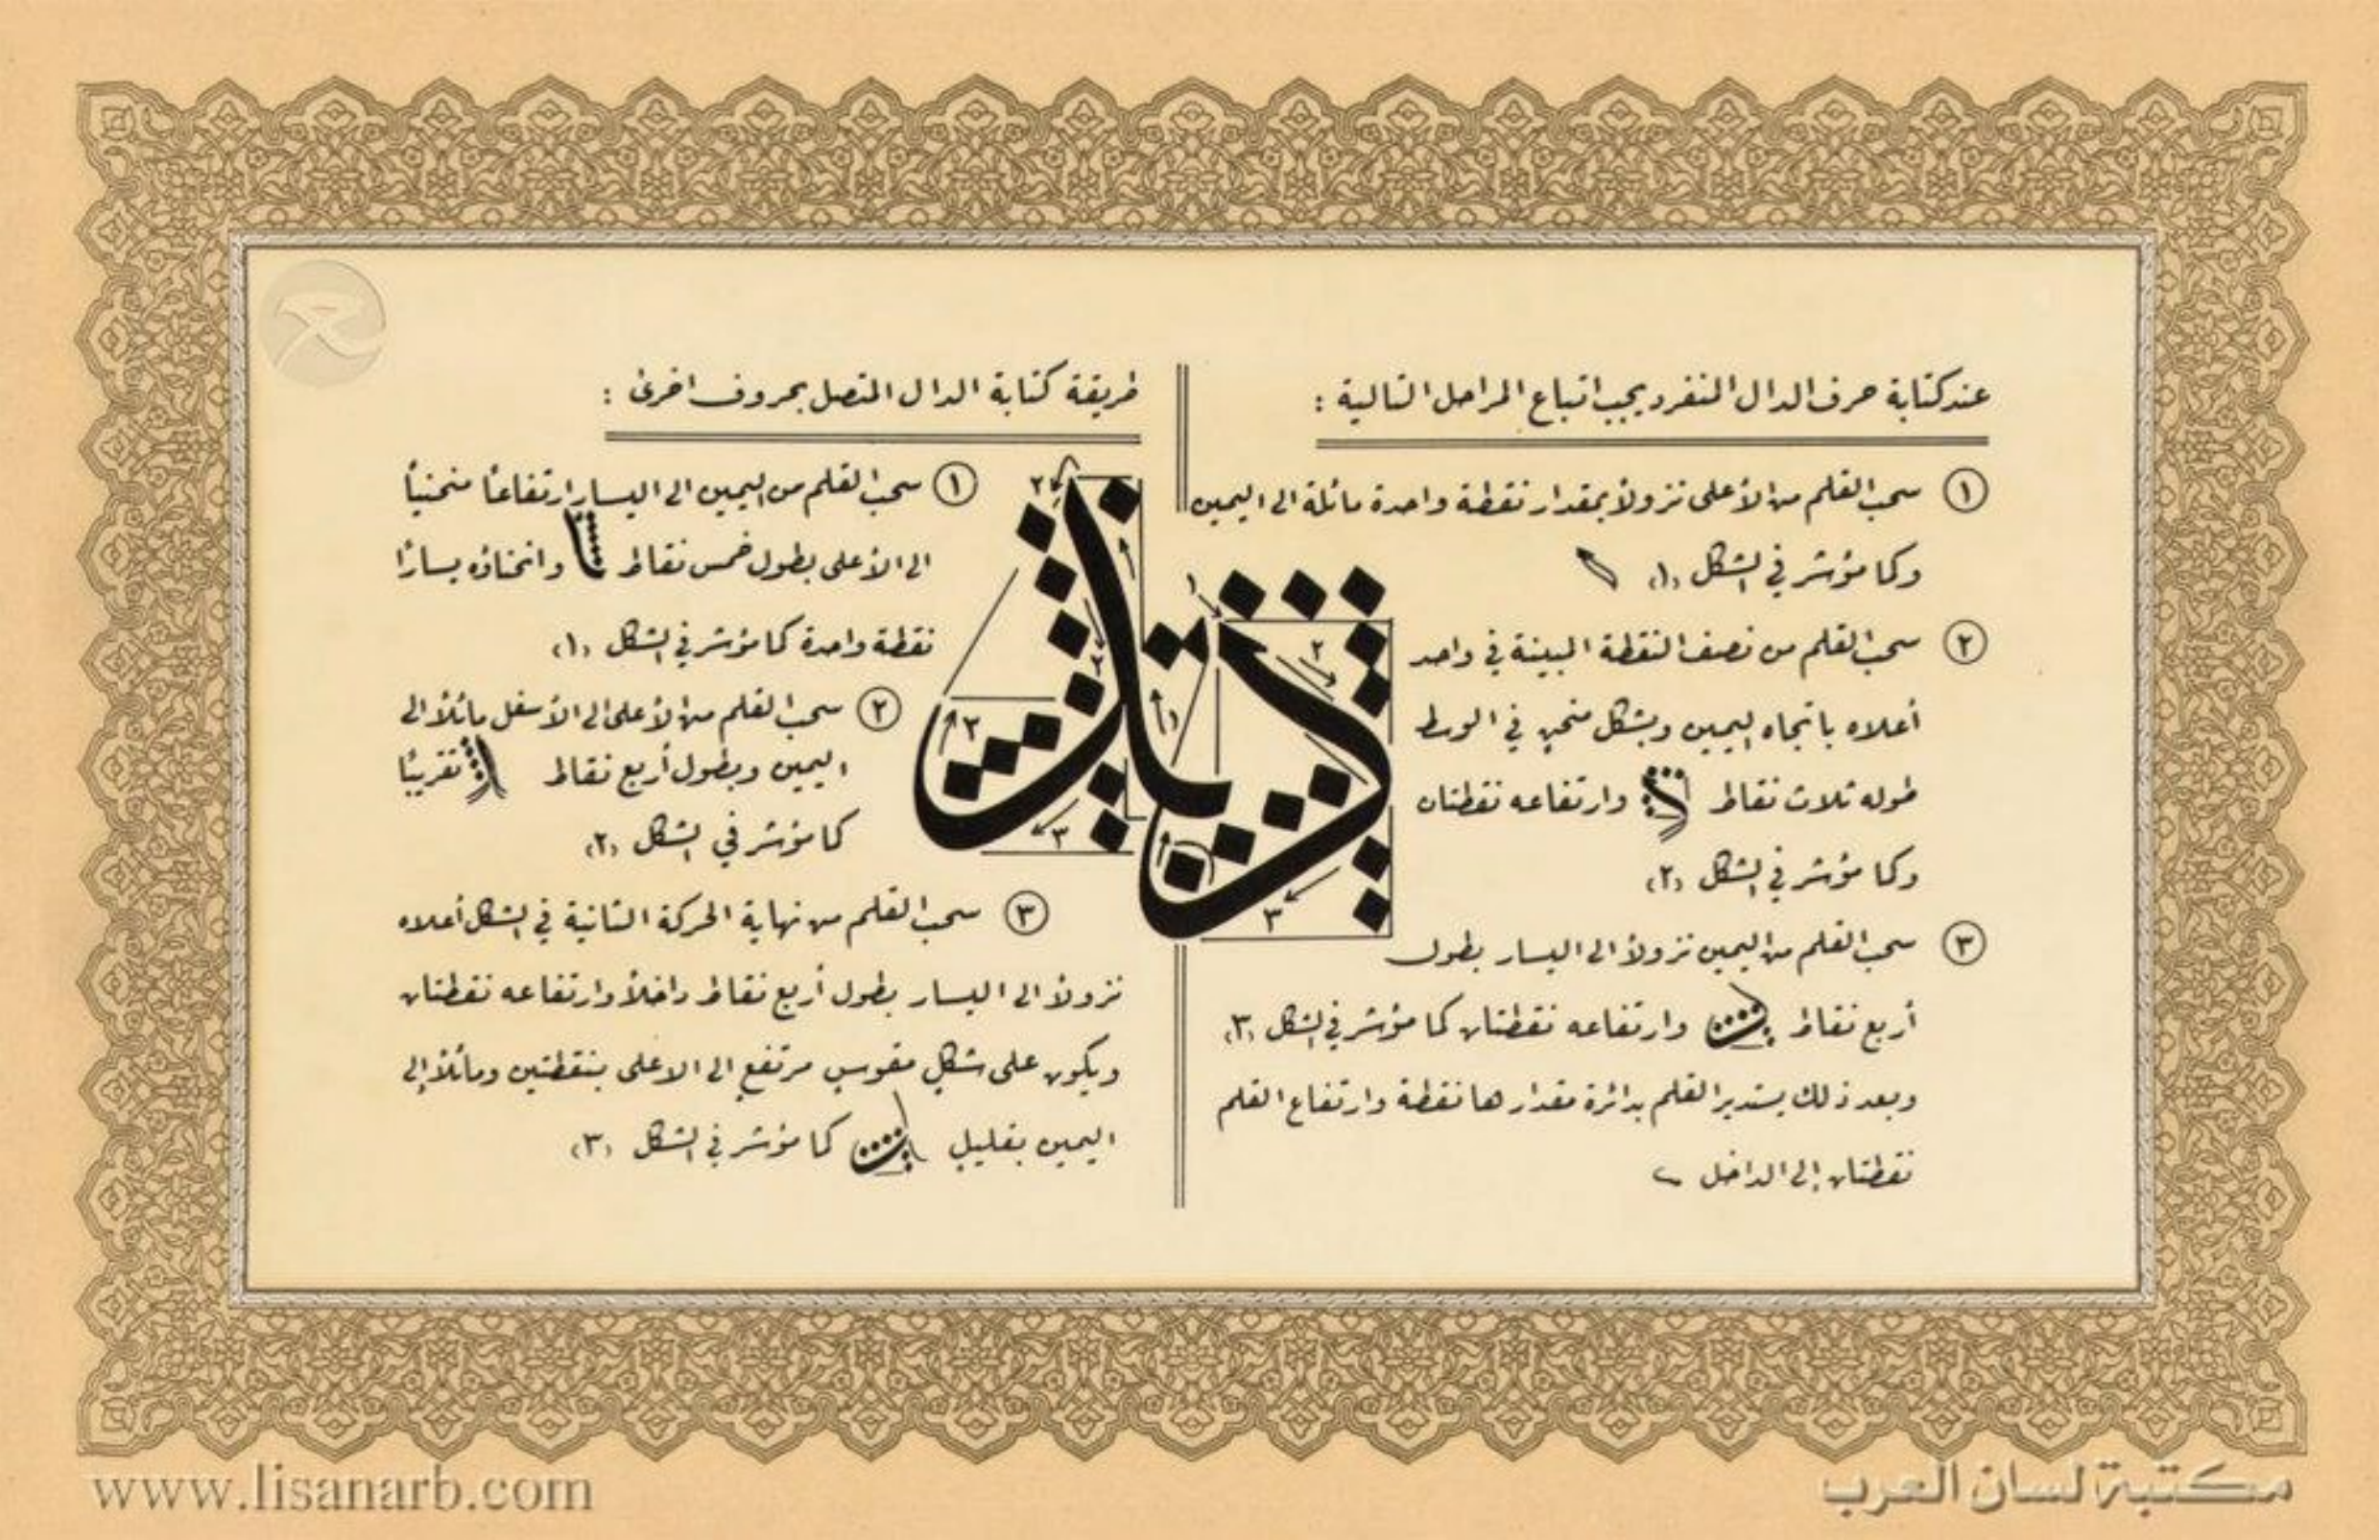 عند كتابة حرف الدال المنفرد يجب اتباع المراحل التالية :
١ سحب القلم من الأعلى نزولاً بمقدار نقطة واحدة مائلة الى اليمين
وكما مؤشر في الشكل (١)
٢ سحب القلم من نصف النقطة المبينة في واحد
أعلاه باتجاه اليمين وبشكل منحني في الوسط
طوله ثلاث نقاط وارتفاعه نقطتان
وكما مؤشر في الشكل (٢)
٣ سحب القلم من اليمين نزولاً الى اليسار بطول
أربع نقاط وارتفاعه نقطتان كما مؤشر في الشكل (٣)
وبعد ذلك يستدير القلم بدائرة مقدارها نقطة وارتفاع القلم
نقطتان إلى الداخل
طريقة كتابة الدال المتصل بحروف اخرى :
١ سحب القلم من اليمين الى اليسار ارتفاعاً منحنياً
الى الأعلى بطول خمس نقاط وانحناؤه يساراً
نقطة واحدة كما مؤشر في الشكل (١)
٢ سحب القلم من الأعلى الى الأسفل مائلاً الى
اليمين وبطول أربع نقاط تقريباً
كما مؤشر في الشكل (٢)
٣ سحب القلم من نهاية الحركة الثانية في الشكل أعلاه
نزولاً الى اليسار بطول أربع نقاط داخلاً وارتفاعه نقطتان
ويكون على شكل مقوس مرتفع الى الاعلى بنقطتين ومائلاً إلى
اليمين بقليل كما مؤشر في الشكل (٣)
١
٢
٣
١
٢
٢
٣
٣
www.lisanarb.com
مكتبة لسان العرب